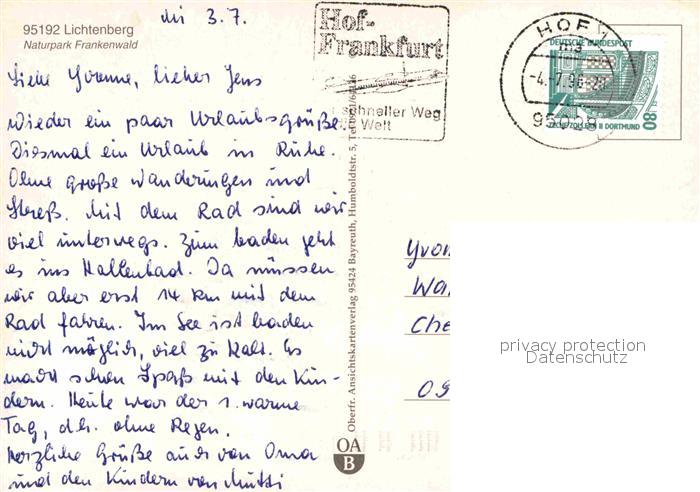 95192 Lichtenberg
Naturpark Frankenwald
3.7.
Liebe Yvonne, lieber Jens
wieder ein paar Urlaubsgrüße.
Diesmal ein Urlaub in Ruhe.
Ohne große Wanderungen und
Streß. Mit dem Rad sind wir
viel unterwegs. Zum baden geht
es ins Hallenbad. Da müssen
wir aber erst 14 km mit dem
Rad fahren. Im See ist baden
nicht möglich, viel zu kalt. Es
macht schon Spaß mit den Kin-
dern. Heute war der 1. warme
Tag, d.h. ohne Regen.
Herzliche Grüße auch von Oma
und den Kindern von Mutti
Oberfr. Ansichtskartenverlag 95424 Bayreuth, Humboldtstr. 5,
OA
B
Hof-
Frankfurt
schneller Weg
Welt
HOF
-4.-7.96
DEUTSCHE BUNDESPOST
II DORTMUND
80
Yvon
Wa
Che
09
privacy protection
Datenschutz